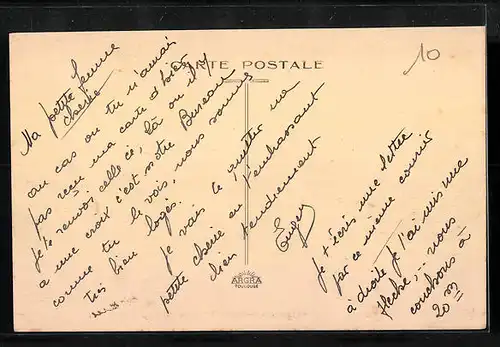 CARTE POSTALE
10
Ma petite femme
chérie
au cas ou tu n'aurais
pas reçu ma carte d'hier
je te renvoi celle ci, là ou il y
a une croix c'est notre Bureau
comme tu le vois, nous sommes
très bien logés.
je vais te quitter ma
petite chérie en t'embrassant
bien tendrement
Eugen
Je t'écris une lettre
par ce même courrier
à droite je t'ai mis une
flèche, nous
couchons à
20 m
ARGRA
TOULOUSE